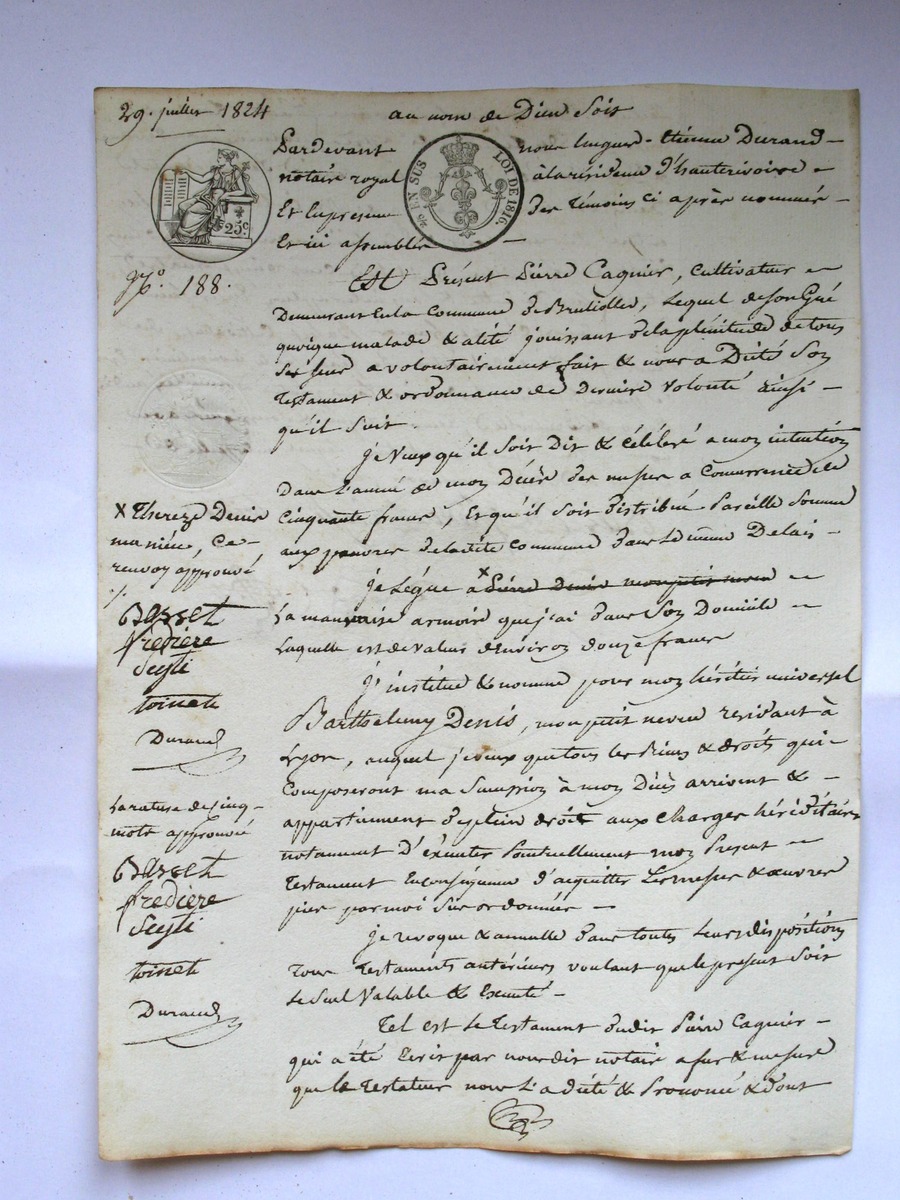 29. juillet 1824
au nom de Dieu soit
Pardevant nous hugues-Étienne Durand-
notaire royal à la résidence d'hauterivoire
Et En présence des témoins ci après nommés-
Et ici assemblés-
25c.
EN SUS
LOI DE 1816.
No. 188.
Est Présent Pierre Cagnier, Cultivateur
Demeurant En la Commune de Brullolles, lequel de son Gré
quoique malade & alité jouissant de la plénitude de tous
ses sens a volontairement fait & nous a Dicté son
testament & ordonnance de Derniere volonté ainsi-
qu'il suit.
Je veux qu'il soit Dit & célébré a mon intention
Dans l'année de mon Décès des messes a Concurrence de
Cinquante francs, Et qu'il soit distribué Pareille somme
aux pauvres de ladite Commune Dans le même Delais-
Je Lègue a x Pierre Denis mon petit neveu
La mauvaise armoire que j'ai Dans son Domicile
Laquelle est de valeur d'Environ douze francs
J'institue & nomme pour mon héritier universel
Barthelemy Denis, mon petit neveu résidant à
Lyon, auquel je veux que tous les Biens & droits qui-
Composeront ma succession à mon Décès arrivent &-
appartiennent de plein droit aux charges héréditaires
notamment D'éxécuter Ponctuellement mon Présent
testament En conséquence d'acquitter les messes & œuvres
pies par moi sus ordonnées-
Je revoque & annulle Dans toutes leurs dispositions
tous testaments antérieurs voulant que le présent soit
le seul valable & Executé-
Tel est le testament dudit Pierre Cagnier-
qui a été Ecrit par nousdit notaire a fur & mesure
que le testateur nous l'a dicté & Prononcé & dont
x Thereze Denis
ma nièce, Ce-
renvoy approuvé
./.
Basset
fredière
toinet
Durand
La rature de cinq-
mots approuvée
Basset
fredière
toinet
Durand